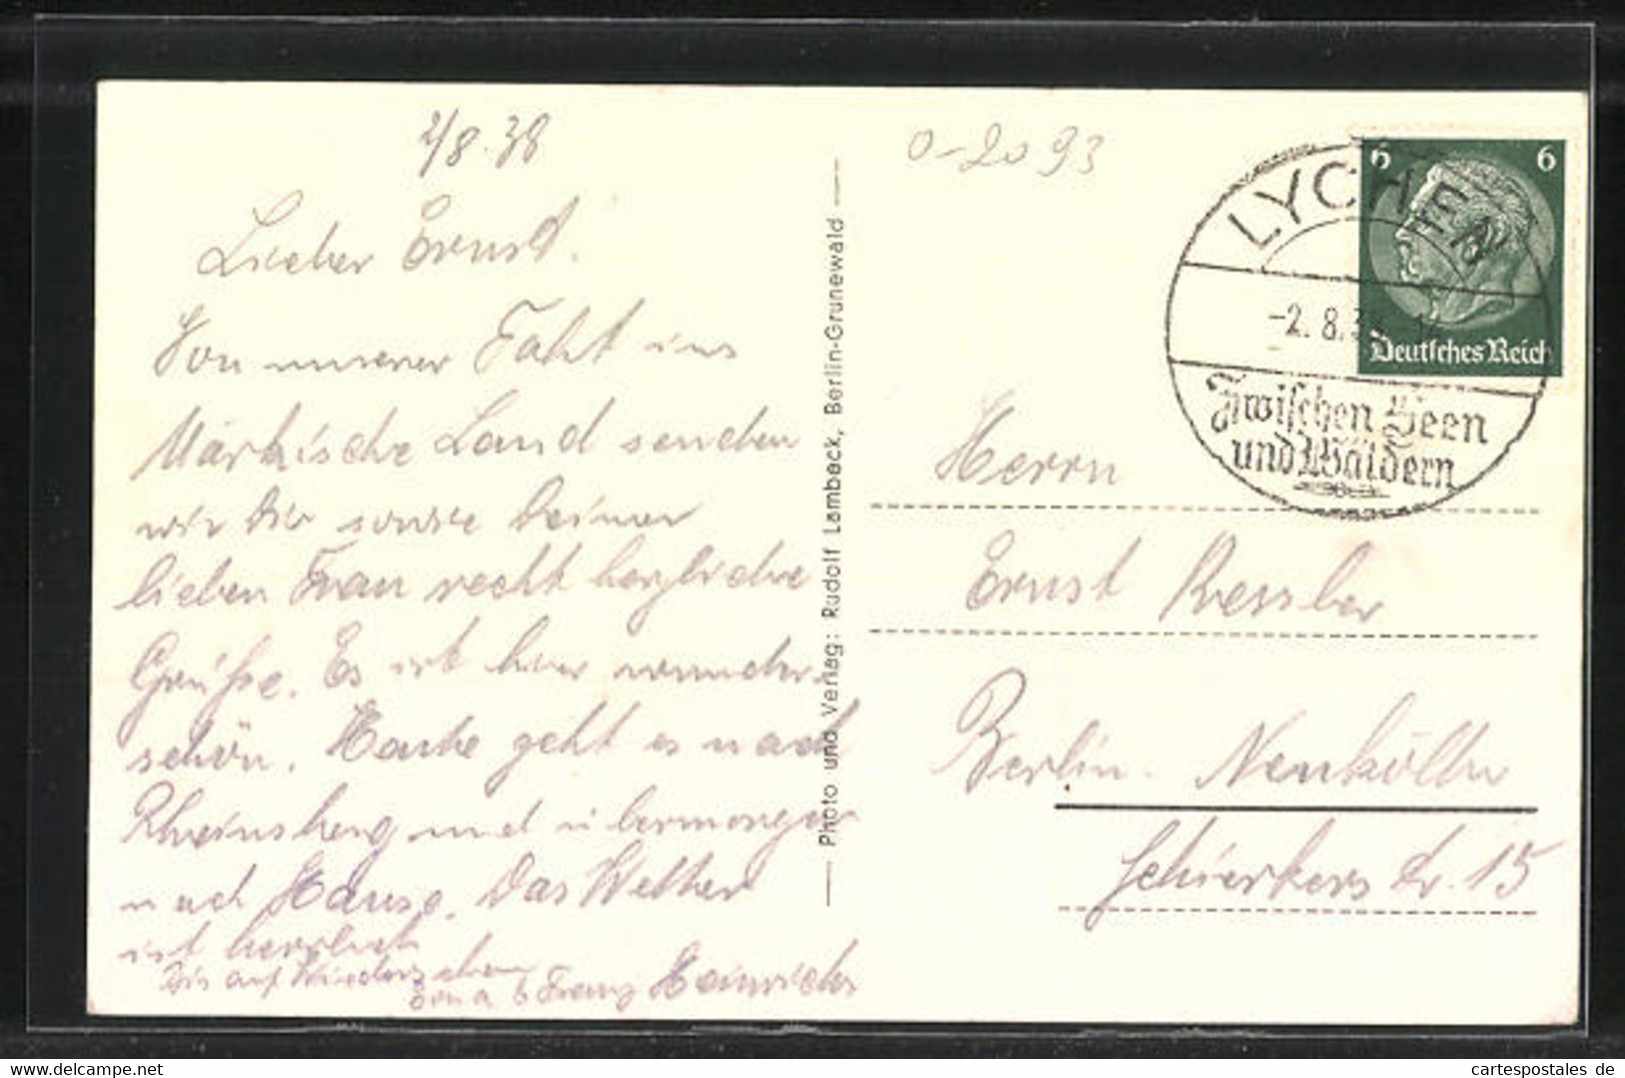 2/8.38
Lieber Ernst.
Von unserer Faht ins
Märkische Land senden
wir Dir sowie Deiner
lieben Frau recht herzliche
Grüße. Es ist hier wunder-
schön. Heute geht es nach
Rheinsberg und übermorgen
nach Hause. Das Wetter
ist herrlich
Bis auf Wiedersehen
Franz Heinrichs
Photo und Verlag: Rudolf Lambeck, Berlin-Grunewald
0-2093
LYCHEN
-2. 8. 3
Zwischen Seen
und Wäldern
6 6
Deutsches Reich
Herrn
Ernst Ressler
Berlin-Neukölln
Schierkerstr. 15
www.delcampe.net
cartespostales de